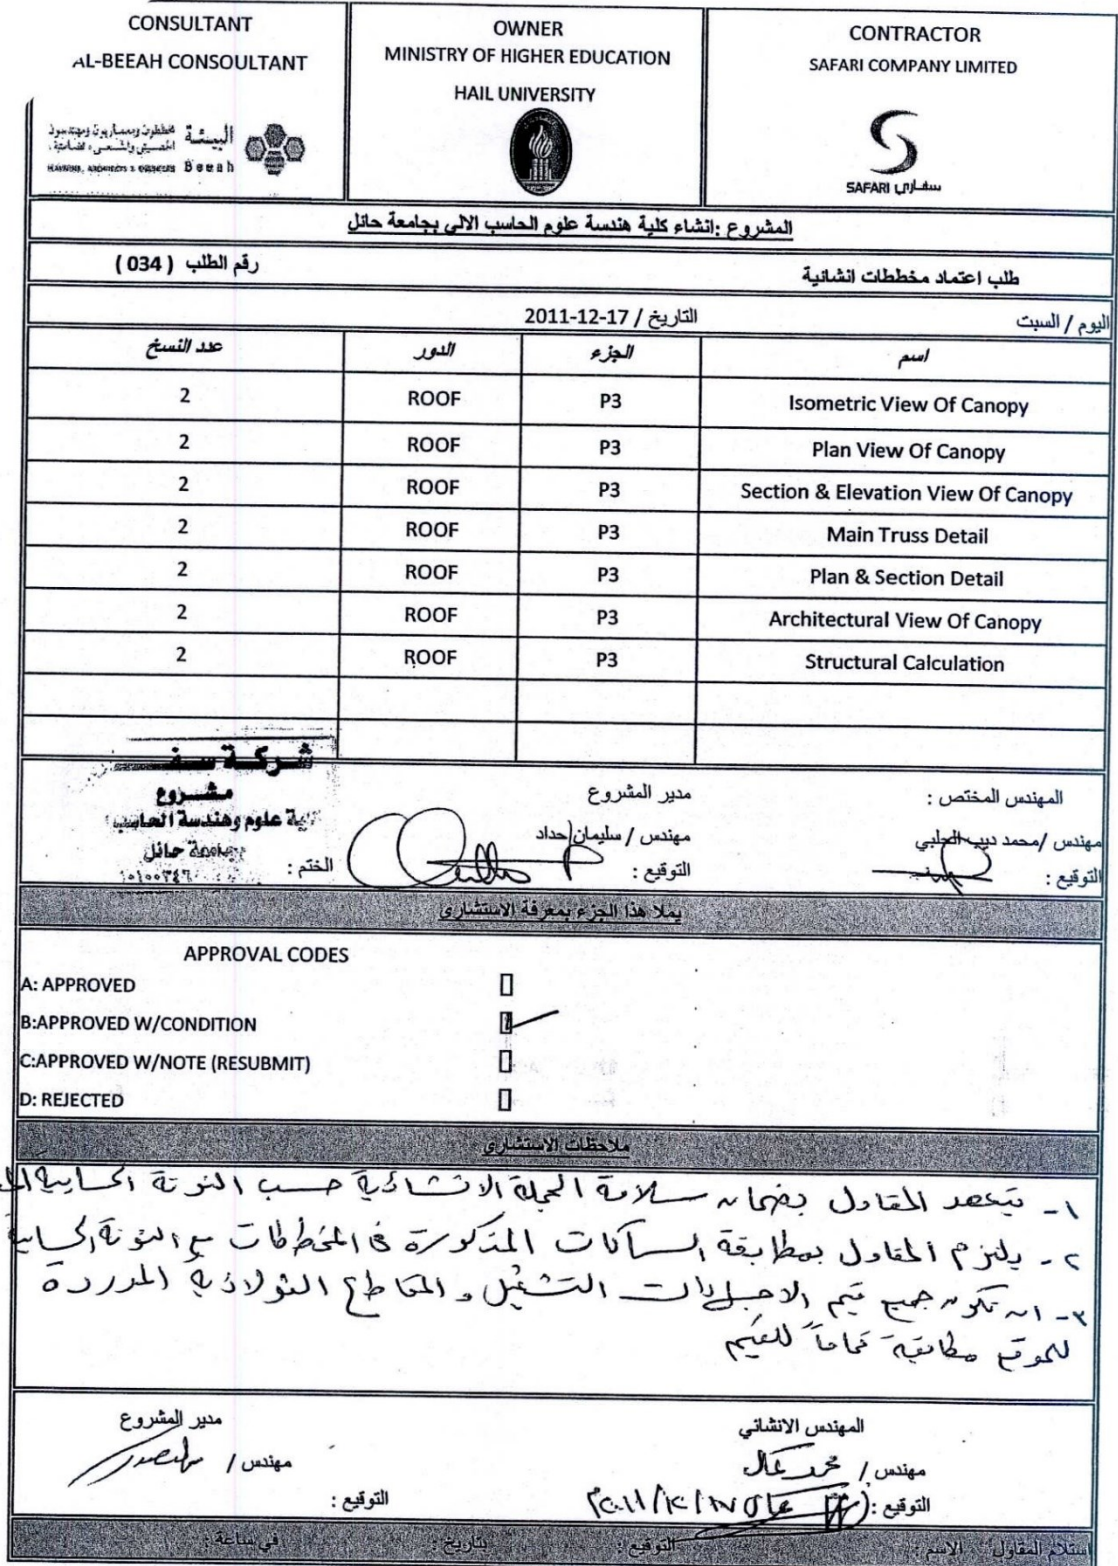 CONSULTANT
AL-BEEAH CONSOULTANT
البيئة
Beeah
OWNER
MINISTRY OF HIGHER EDUCATION
HAIL UNIVERSITY
CONTRACTOR
SAFARI COMPANY LIMITED
SAFARI سفاري
المشروع :انشاء كلية هندسة علوم الحاسب الالي بجامعة حائل
طلب اعتماد مخططات انشائية رقم الطلب ( 034 )
اليوم / السبت التاريخ / 17-12-2011
اسم الجزء الدور عدد النسخ
Isometric View Of Canopy P3 ROOF 2
Plan View Of Canopy P3 ROOF 2
Section & Elevation View Of Canopy P3 ROOF 2
Main Truss Detail P3 ROOF 2
Plan & Section Detail P3 ROOF 2
Architectural View Of Canopy P3 ROOF 2
Structural Calculation P3 ROOF 2
المهندس المختص : مدير المشروع
مهندس /محمد ديب الحلبي مهندس / سليمان حداد
التوقيع : التوقيع : الختم :
شركة سف
مشروع
علوم وهندسة الحاسب
بجامعة حائل
يملا هذا الجزء بمعرفة الاستشاري
APPROVAL CODES
A: APPROVED
B:APPROVED W/CONDITION
C:APPROVED W/NOTE (RESUBMIT)
D: REJECTED
ملاحظات الاستشاري
١- يتعهد المقاول بضمان سلامة الجملة الانشائية حسب النوتة الحسابية
٢- يلتزم المقاول بمطابقة السماكات المذكورة في المخططات مع النوتة الحسابية
٣- ان تكون جميع قيم الاجهادات التشغيل والمقاطع الفولاذية الموردة
للموقع مطابقة تماماً للقيم
المهندس الانشائي مدير المشروع
مهندس / محمد كمال مهندس /
التوقيع : ٢٠١١/١٢/١٧ التوقيع :
استلام المقاول الاسم : التوقيع : بتاريخ : في ساعة :